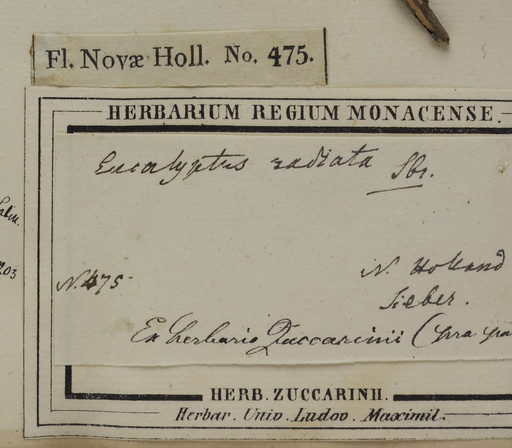 Fl. Novæ Holl. No. 475.
HERBARIUM REGIUM MONACENSE.
Eucalyptus radiata Sbr.
N. 475
N. Holland
Sieber.
Ex herbario Zuccarinii (pra
HERB. ZUCCARINII.
Herbar. Univ. Ludov. Maximil.
203